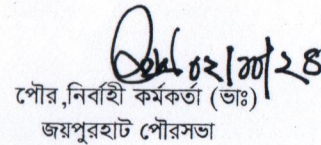 ০২/১০/২৪
পৌর,নির্বাহী কর্মকর্তা (ভাঃ)
জয়পুরহাট পৌরসভা